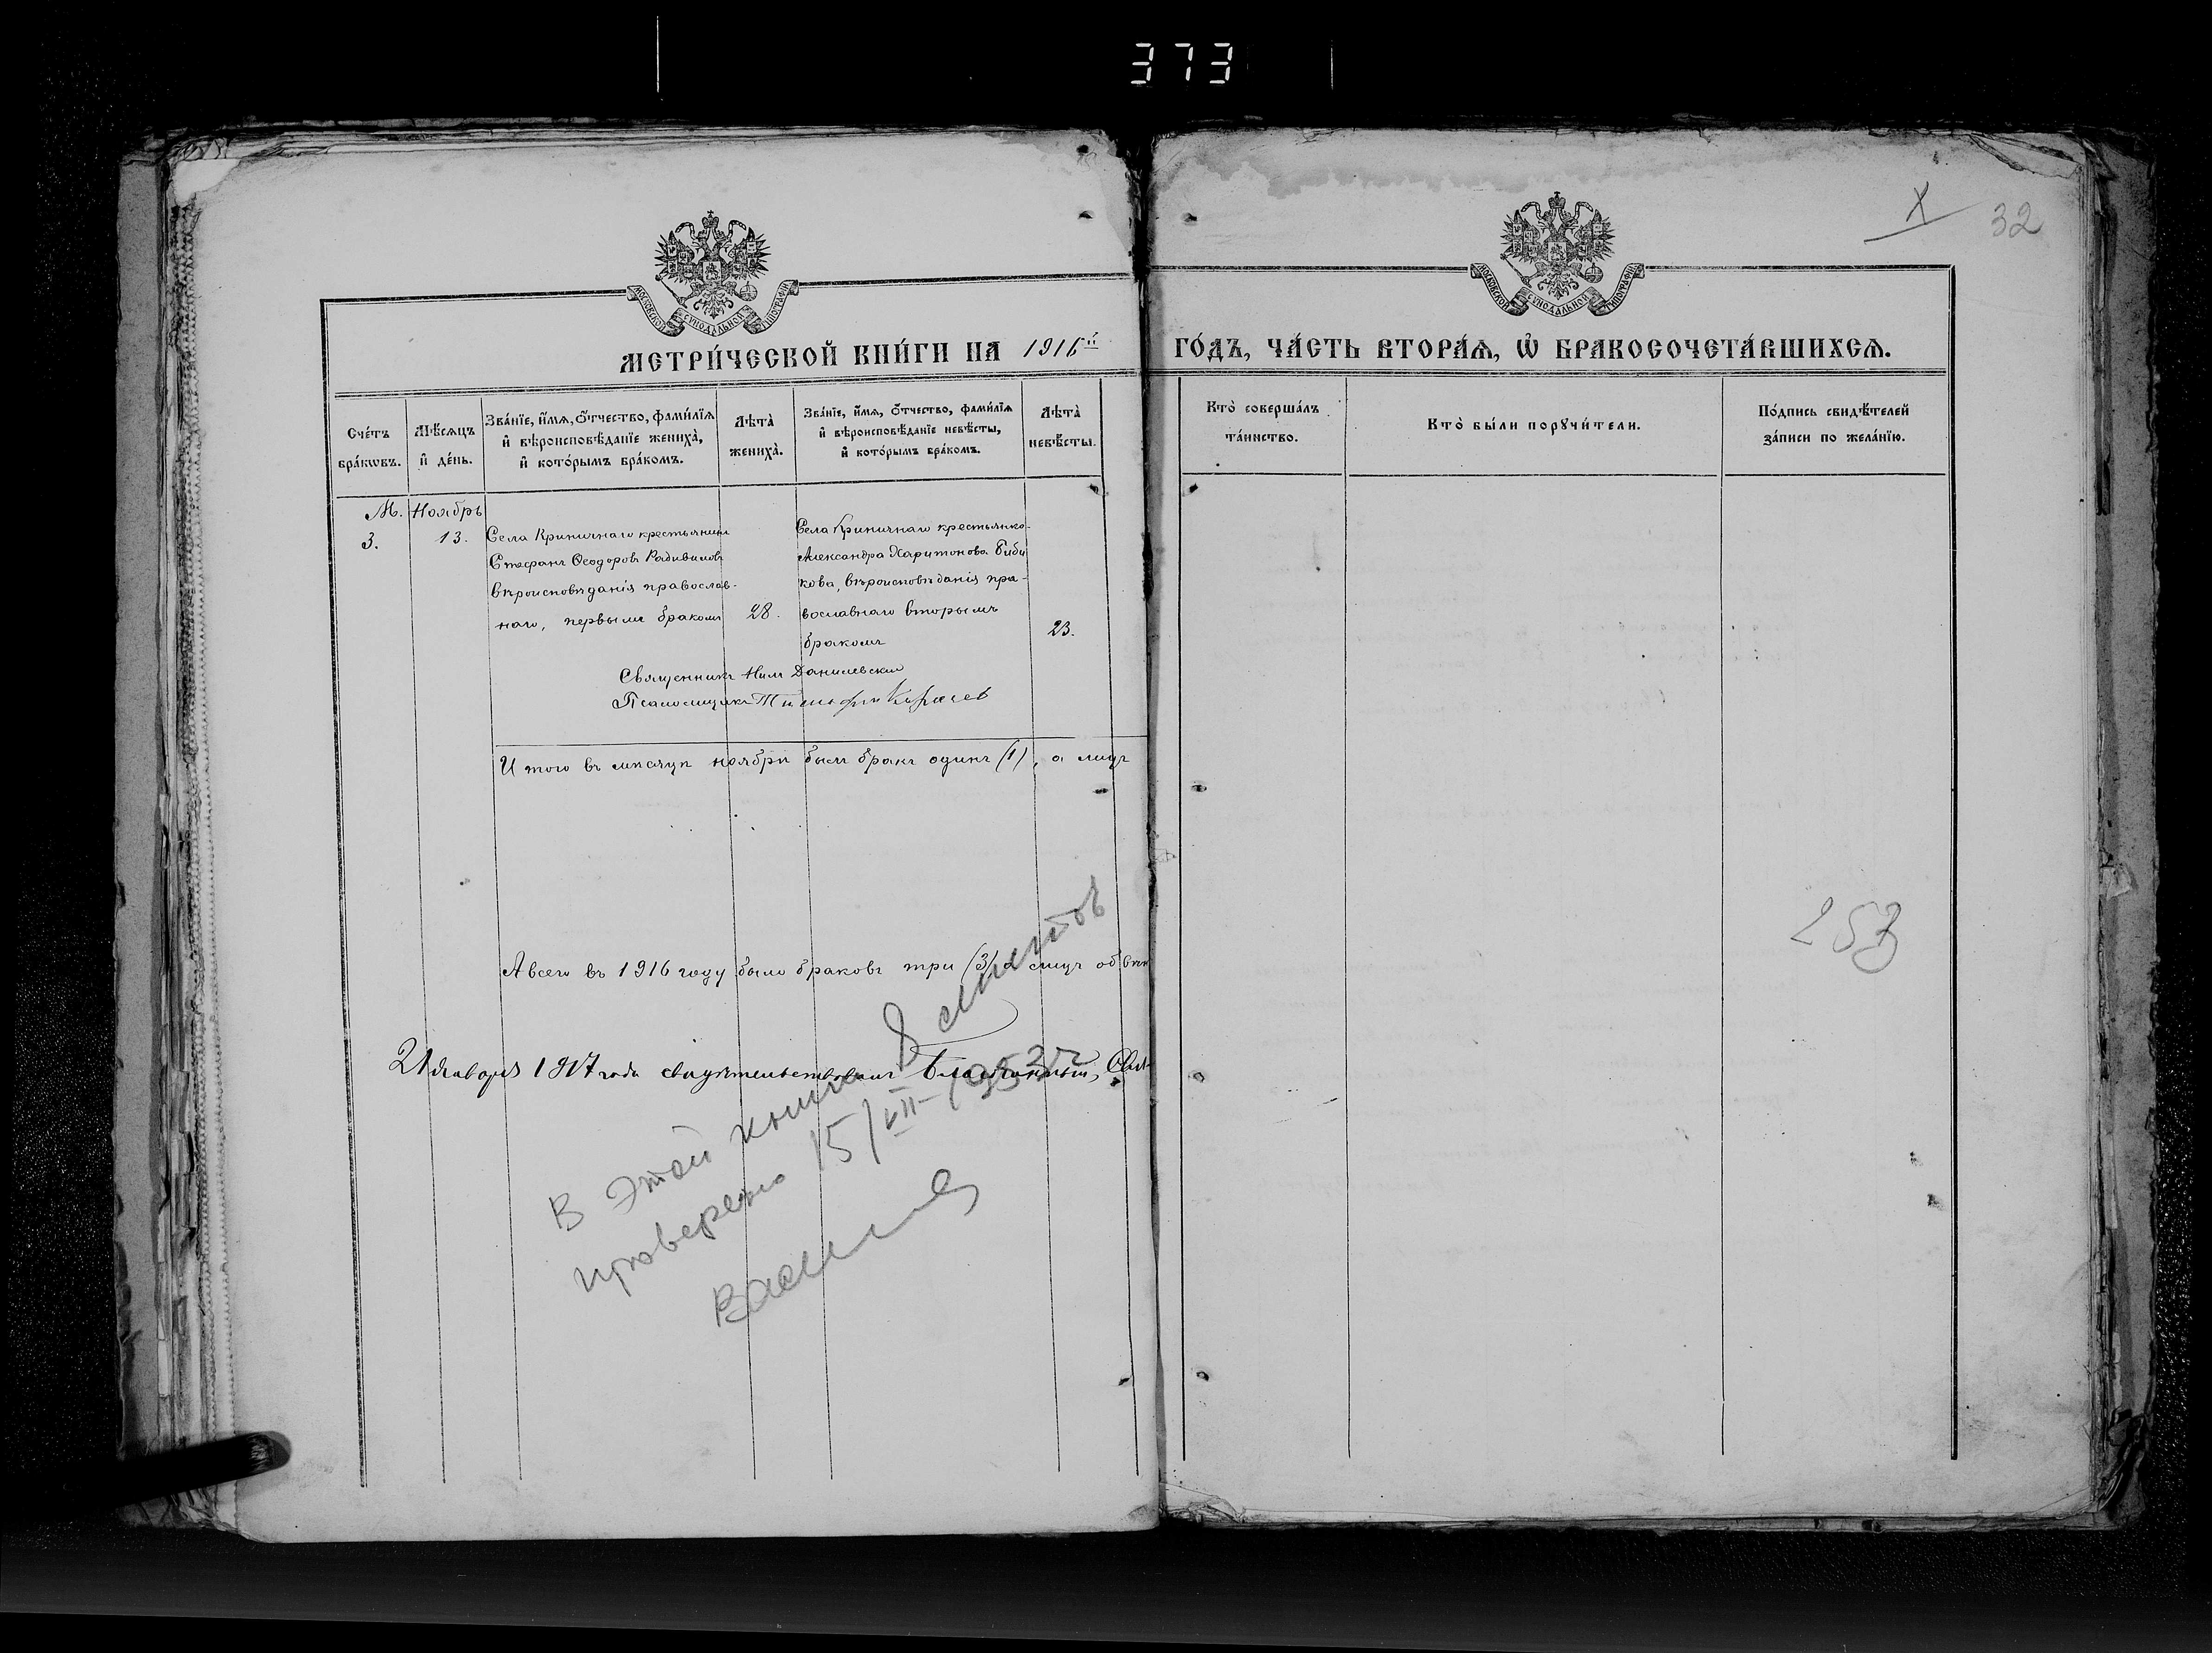 373
Х
32
МОСКОВСКОЙ СѴНОДАЛЬНОЙ ТИПОГРАФІИ
МОСКОВСКОЙ СѴНОДАЛЬНОЙ ТИПОГРАФІИ
МЕТРИ́ЧЕСКОЙ КНИ́ГИ НА 1916й ГО́ДЪ, ЧА́СТЬ ВТОРА́Ѧ, Ѽ БРАКОСОЧЕТА́ВШИХСѦ.
Сче́тъ
бра́кѡвъ.
Мѣ́сѧцъ
и҆ де́нь.
Зва́нїе, и҆́мѧ, ѻ҆́тчество, фами́лїѧ
и҆ вѣроисповѣ́данїе жениха̀,
и҆ кото́рымъ бра́комъ.
Лѣ́та̀
жениха̀.
Зва́нїе, и҆́мѧ, ѻ҆́тчество, фами́лїѧ
и҆ вѣроисповѣ́данїе невѣ́сты,
и҆ кото́рымъ бра́комъ.
Лѣ́та̀
невѣ́сты.
Кто̀ соверша́лъ
та́инство.
Кто̀ бы́ли порꙋчи́тели.
По́дпись свидѣ́телей
за́писи по жела́нїю.
М.
3.
Ноябрь
13.
Села Криничнаго крестьянинъ
Стефанъ Ѳеодоровъ Радивиловъ
вѣроисповѣданія православ-
наго, первымъ бракомъ
28.
Села Криничнаго крестьянка
Александра Харитонова Биби
кова, вѣроисповѣданія пра-
вославнаго вторымъ
бракомъ
23.
Священникъ Нилъ Данилевскій
Псаломщикъ
Итого въ мѣсяцѣ ноябрѣ былъ бракъ одинъ (1), а лицъ
А всего въ 1916 году было браковъ три (3) а лицъ об
21 января 1917 года свидѣтельствовалъ Благочинный, Свящ
В этой книге 8 листов
проверено 15/VII-1953 г
253